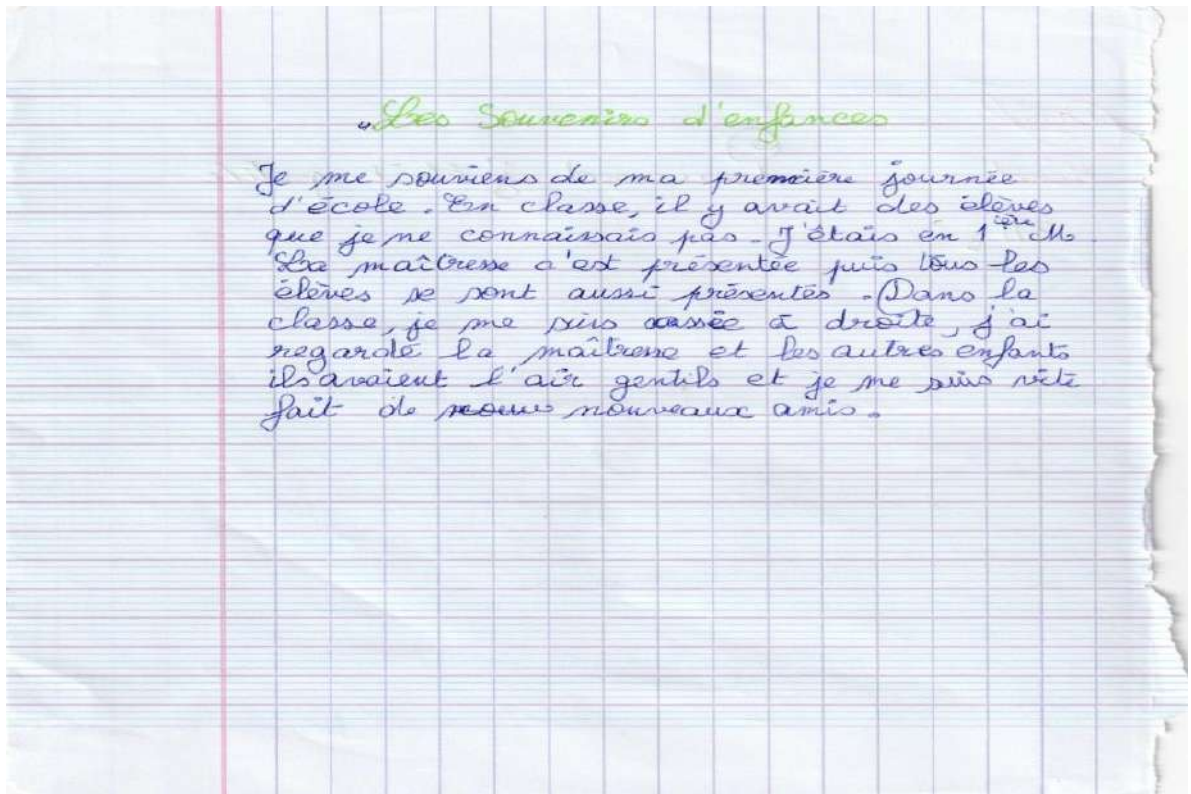 Les Souvenirs d'enfances
Je me souviens de ma première journée
d'école. En classe, il y avait des élèves
que je ne connaissais pas. J'étais en 1ère M.
La maîtresse c'est présentée puis tous les
élèves se sont aussi présentés. Dans la
classe, je me suis assée à droite, j'ai
regardé la maîtresse et les autres enfants
ils avaient l'air gentils et je me suis vite
fait de nouveaux amis.